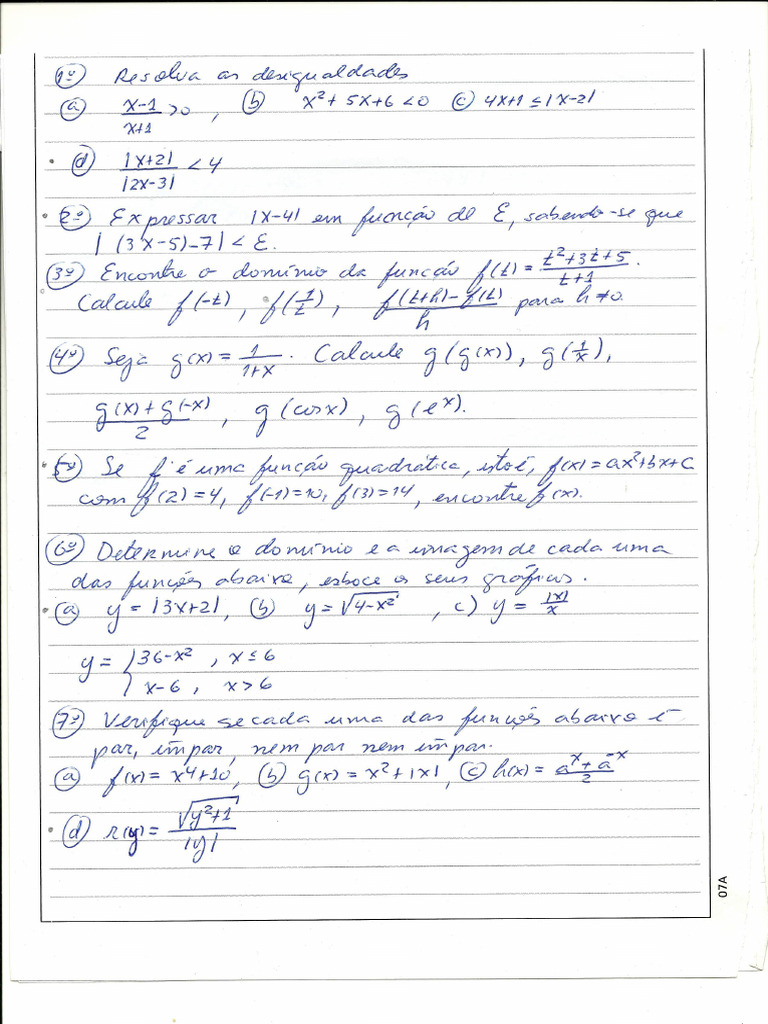 1º) Resolva as desigualdades
a) (x-1)/(x+1) > 0 , b) x² + 5x + 6 < 0 c) 4x+1 ≤ |x-2|
d) |x+2|/|2x-3| < 4
2º) Expressar |x-4| em função de ε, sabendo-se que
| (3x-5)-7| < ε.
3º) Encontre o domínio da função f(t) = (t²+3t+5)/(t+1).
Calcule f(-t), f(1/t), (f(t+h)-f(t))/h para h≠0.
4º) Seja g(x) = 1/(1+x). Calcule g(g(x)), g(1/x),
(g(x)+g(-x))/2, g(cosx), g(e^x).
5º) Se f é uma função quadrática, isto é, f(x)=ax²+bx+c
com f(2)=4, f(-1)=10, f(3)=14, encontre f(x).
6º) Determine o domínio e a imagem de cada uma
das funções abaixo, esboce os seus gráficos.
a) y = |3x+2|, b) y = √(4-x²) , c) y = |x|/x
y = { 36-x² , x ≤ 6
x-6 , x > 6
7º) Verifique se cada uma das funções abaixo é
par, ímpar, nem par nem ímpar.
a) f(x) = x⁴+10, b) g(x) = x²+|x|, c) h(x) = (a^x + a^-x)/2
d) r(y) = √(y²+1)/|y|
07A